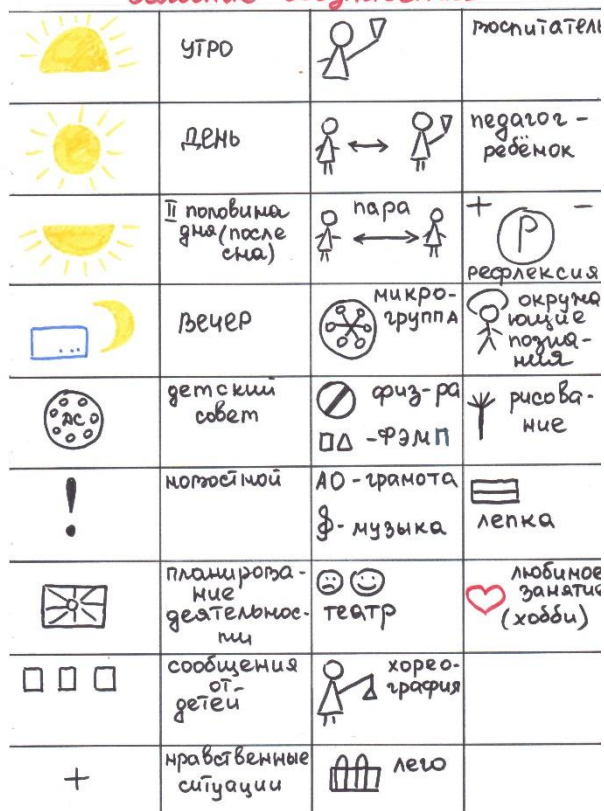 утро
воспитатель
день
педагог -
ребёнок
II половина
дня (после
сна)
пара
+ -
Р
рефлексия
вечер
микро-
группа
окружа
ющие
позна-
ния
ДС
детский
совет
физ-ра
-ФЭМП
рисова-
ние
!
новостной
АО - грамота
- музыка
лепка
планирова-
ние
деятельнос-
ти
театр
любимое
занятие
(хобби)
сообщения
от
детей
хорео-
графия
+
нравственные
ситуации
лего